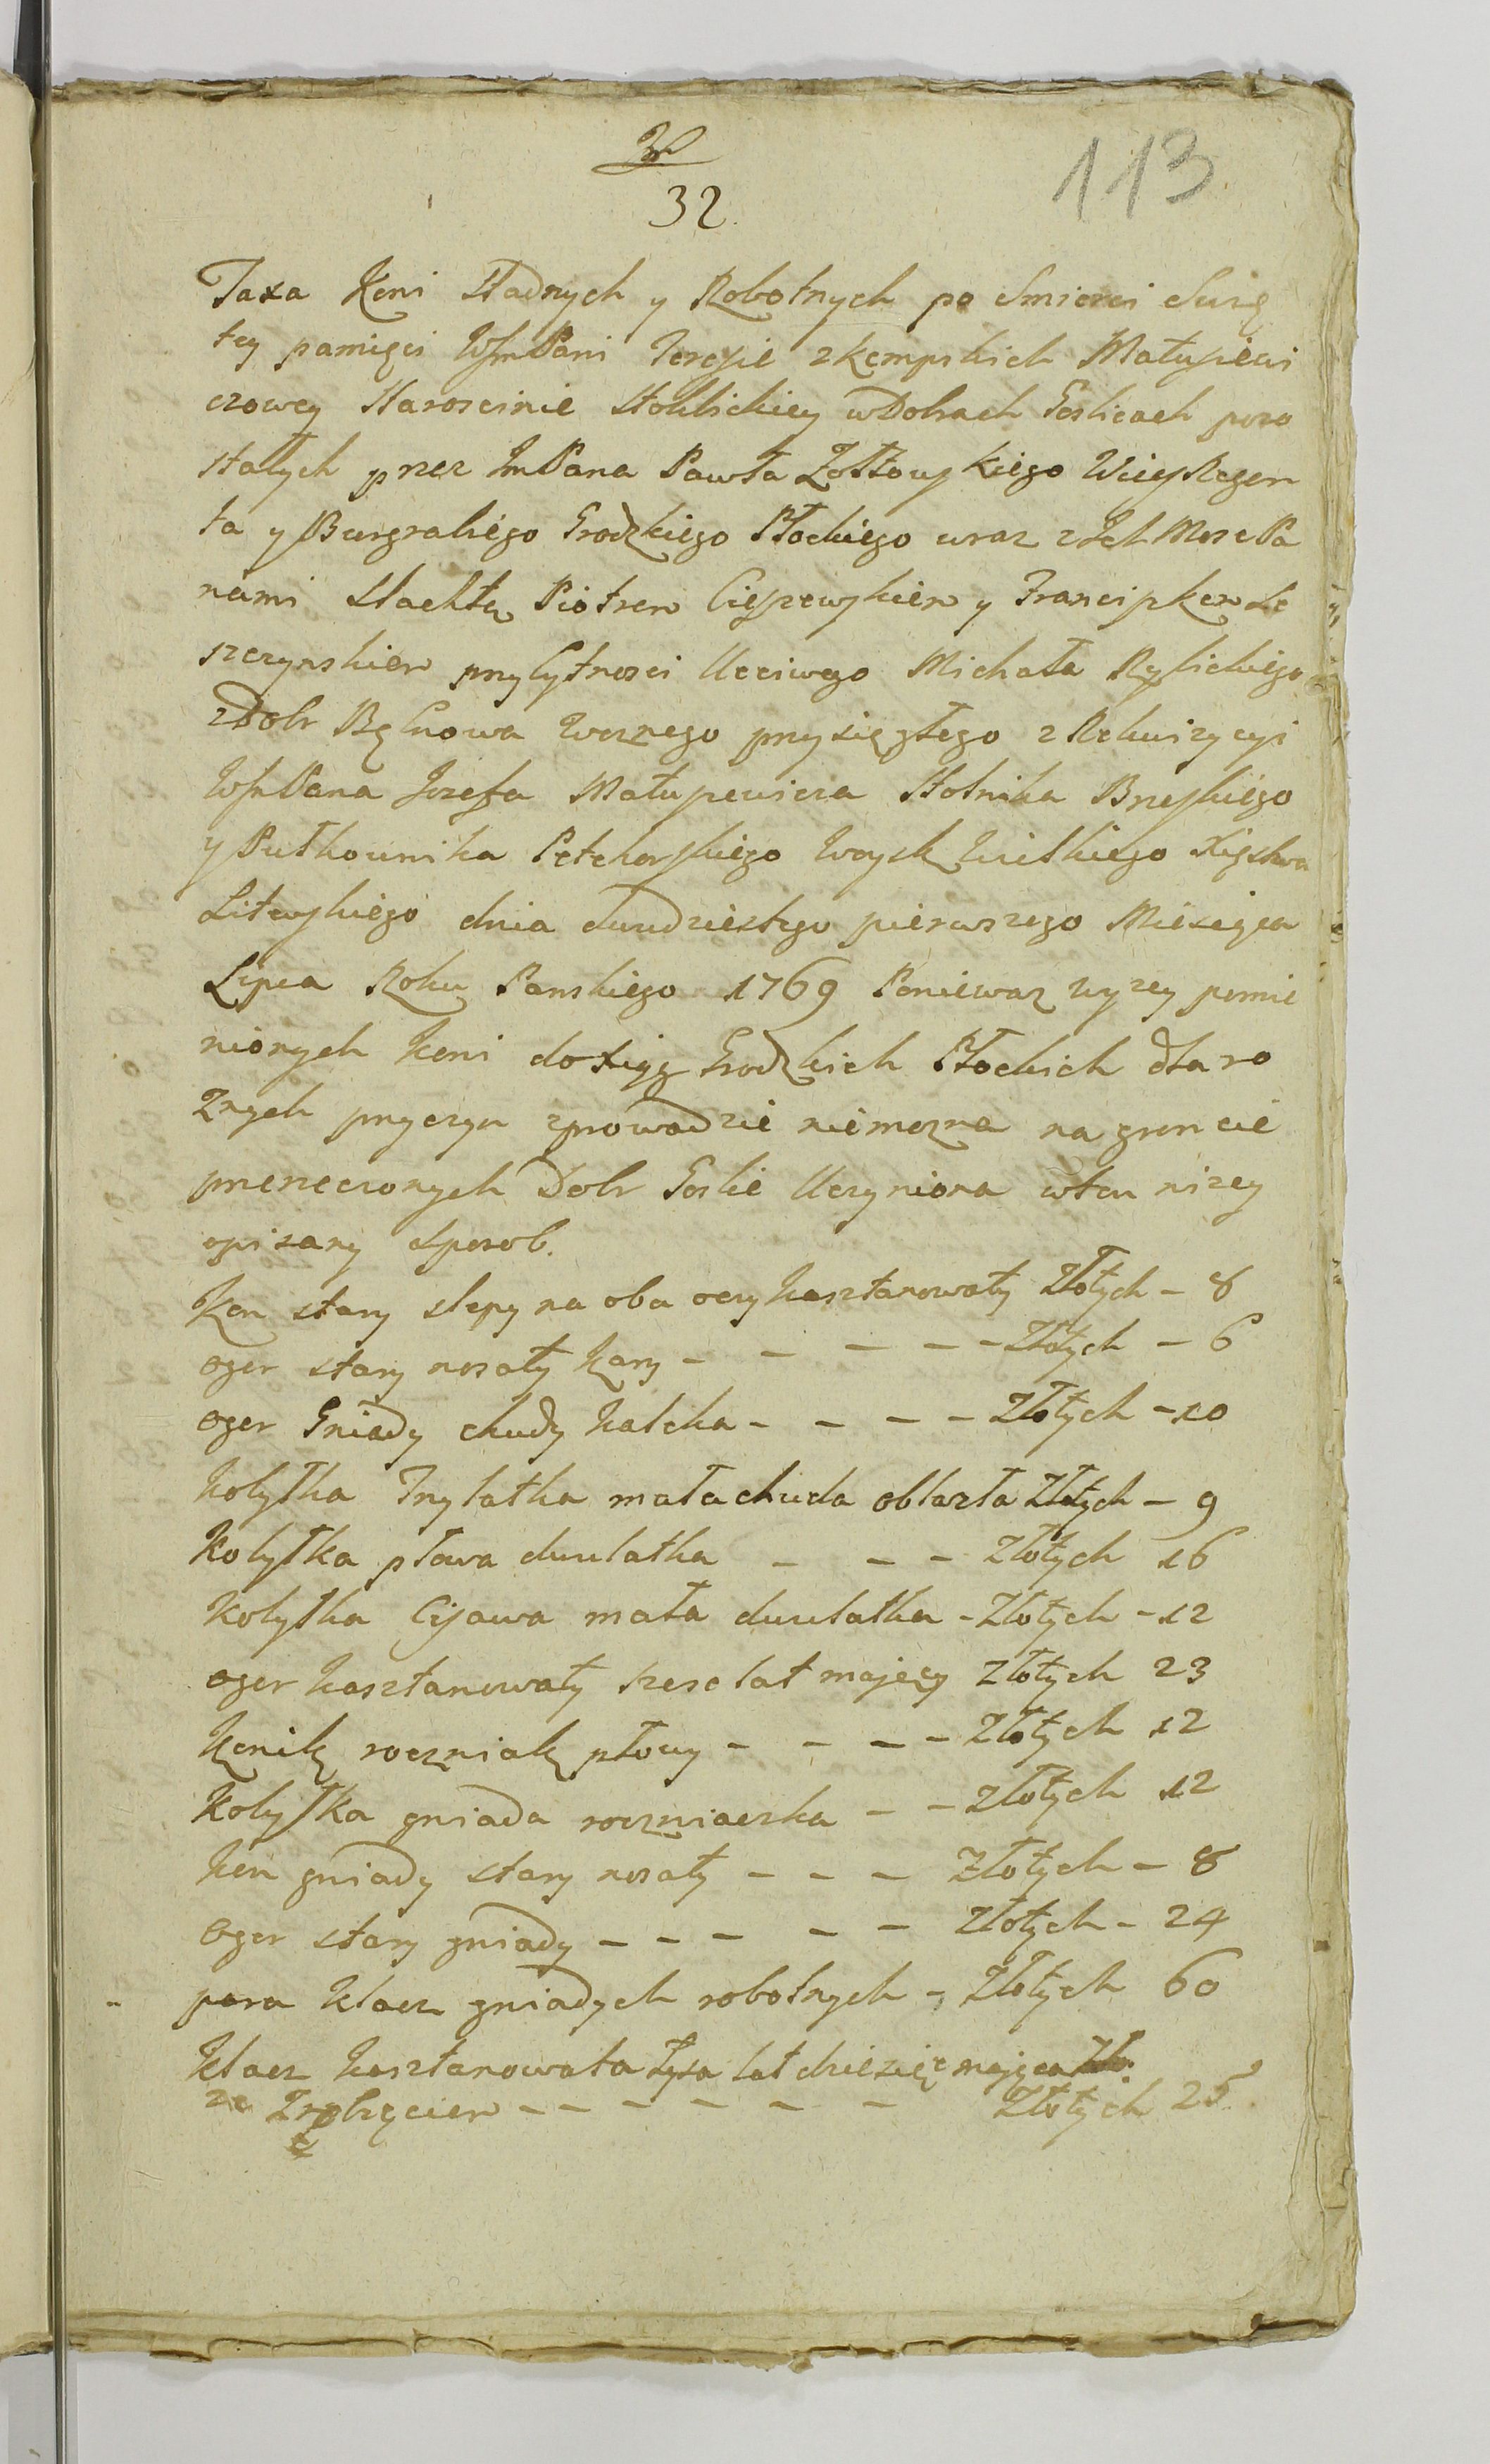 113
32
Taxa Koni Stadnych y Robotnych po Smierci Swię
tey pamięci WJmPani Teresie z Kempskich Matusiewi
czowey Staroscinie Stoklickiey w Dobrach Goslicach pozo
stałych przez JmPana Pawła Zołtowskiego Wicy Regen
ta y Burgrabiego Grodzkiego Płockiego wraz z Ich Mosc Pa
nami Slachtą Piotrem Cieszewskiem y Franciszkem Le
szczynskiem przy bytnosci Uczciwego Michała Rybickiego
z Dobr Bę nowa Woznego przysięgłego z Rekwizycyi
WJmPana Jozefa Matusewicza Stolnika Brzeskiego
y Pułkownika Petehorskiego Woysk Wielkiego Xięstwa
Litewskiego dnia dwudziestego pierwszego Miesiąca
Lipca Roku Panskiego 1769 Poniewaz wyzey pomie
nionych koni do Xiąg Grodzkich Płockich dla ro
znych przyczyn zprowadzic niemozna na gruncie
przerzeczonych Dobr Goslic Uczyniona w ten nizey
opisany Sposob.
Kon stary slepy na oba oczy kasztanowaty Złotych - 8
oger stary nosaty kary - - - - - Złotych - 6
oger Gniady chudy kaleka - - - - Złotych - 10
kobyłka Trzylatka mała chuda oblazła Złotych - 9
kobyłka płowa dwulatka - - - Złotych 16
kobyłka Cisawa mała dwulatka - Złotych - 12
oger kasztanowaty szesc lat maiący Złotych 23
Konik roczniak płowy - - - - Złotych 12
kobyłka gniada roczniaczka - - Złotych 12
kon gniady stary nosaty - - - Złotych - 8
Oger stary gniady - - - - - Złotych - 24
para klacz gniadych robotnych - Złotych 60
klacz kasztanowata łysa lat dziesięć mająca Zło.
ze Zrebięciem - - - - - - Złotych 25